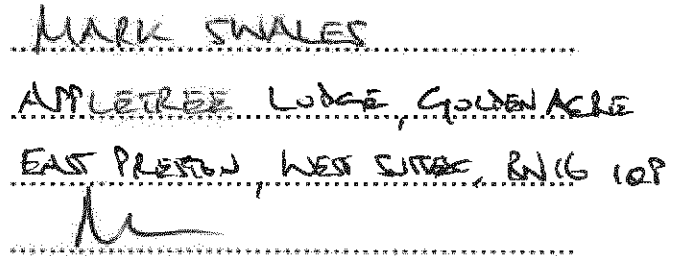 MARK SWALES
APPLETREE LODGE, GOLDEN ACRE
EAST PRESTON, WEST SUSSEX, BN16 1QP